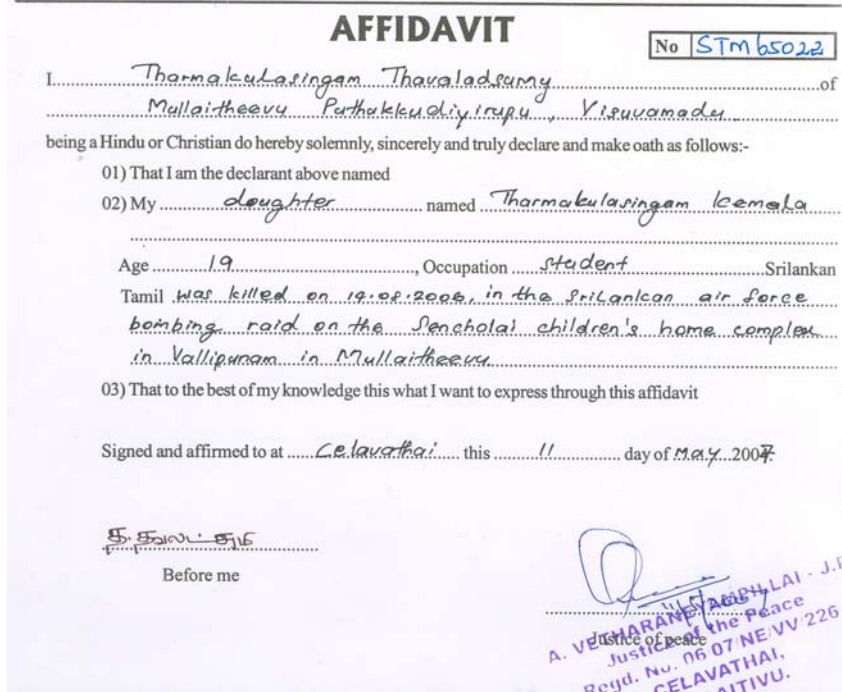 AFFIDAVIT
No STM65022
I Tharmakulasingam Thavaladsumy of
Mullaitheevu Puthukkudiyirupu, Visuvamadu
being a Hindu or Christian do hereby solemnly, sincerely and truly declare and make oath as follows:-
01) That I am the declarant above named
02) My doughter named Tharmakulasingam Kemala
Age 19, Occupation student Srilankan
Tamil was killed on 14.08.2006, in the SriLankan air force
bombing raid on the Sencholai children's home complex
in Vallipunam in Mullaitheevu
03) That to the best of my knowledge this what I want to express through this affidavit
Signed and affirmed to at Celavathai this 11 day of May 2007.
த. தவலட்சுமி
Before me
Justice of peace
A. VETHARANEYAMPILLAI - J.P
Justice of the Peace
Regd. No. 06 07/NE/VV/226
CELAVATHAI,